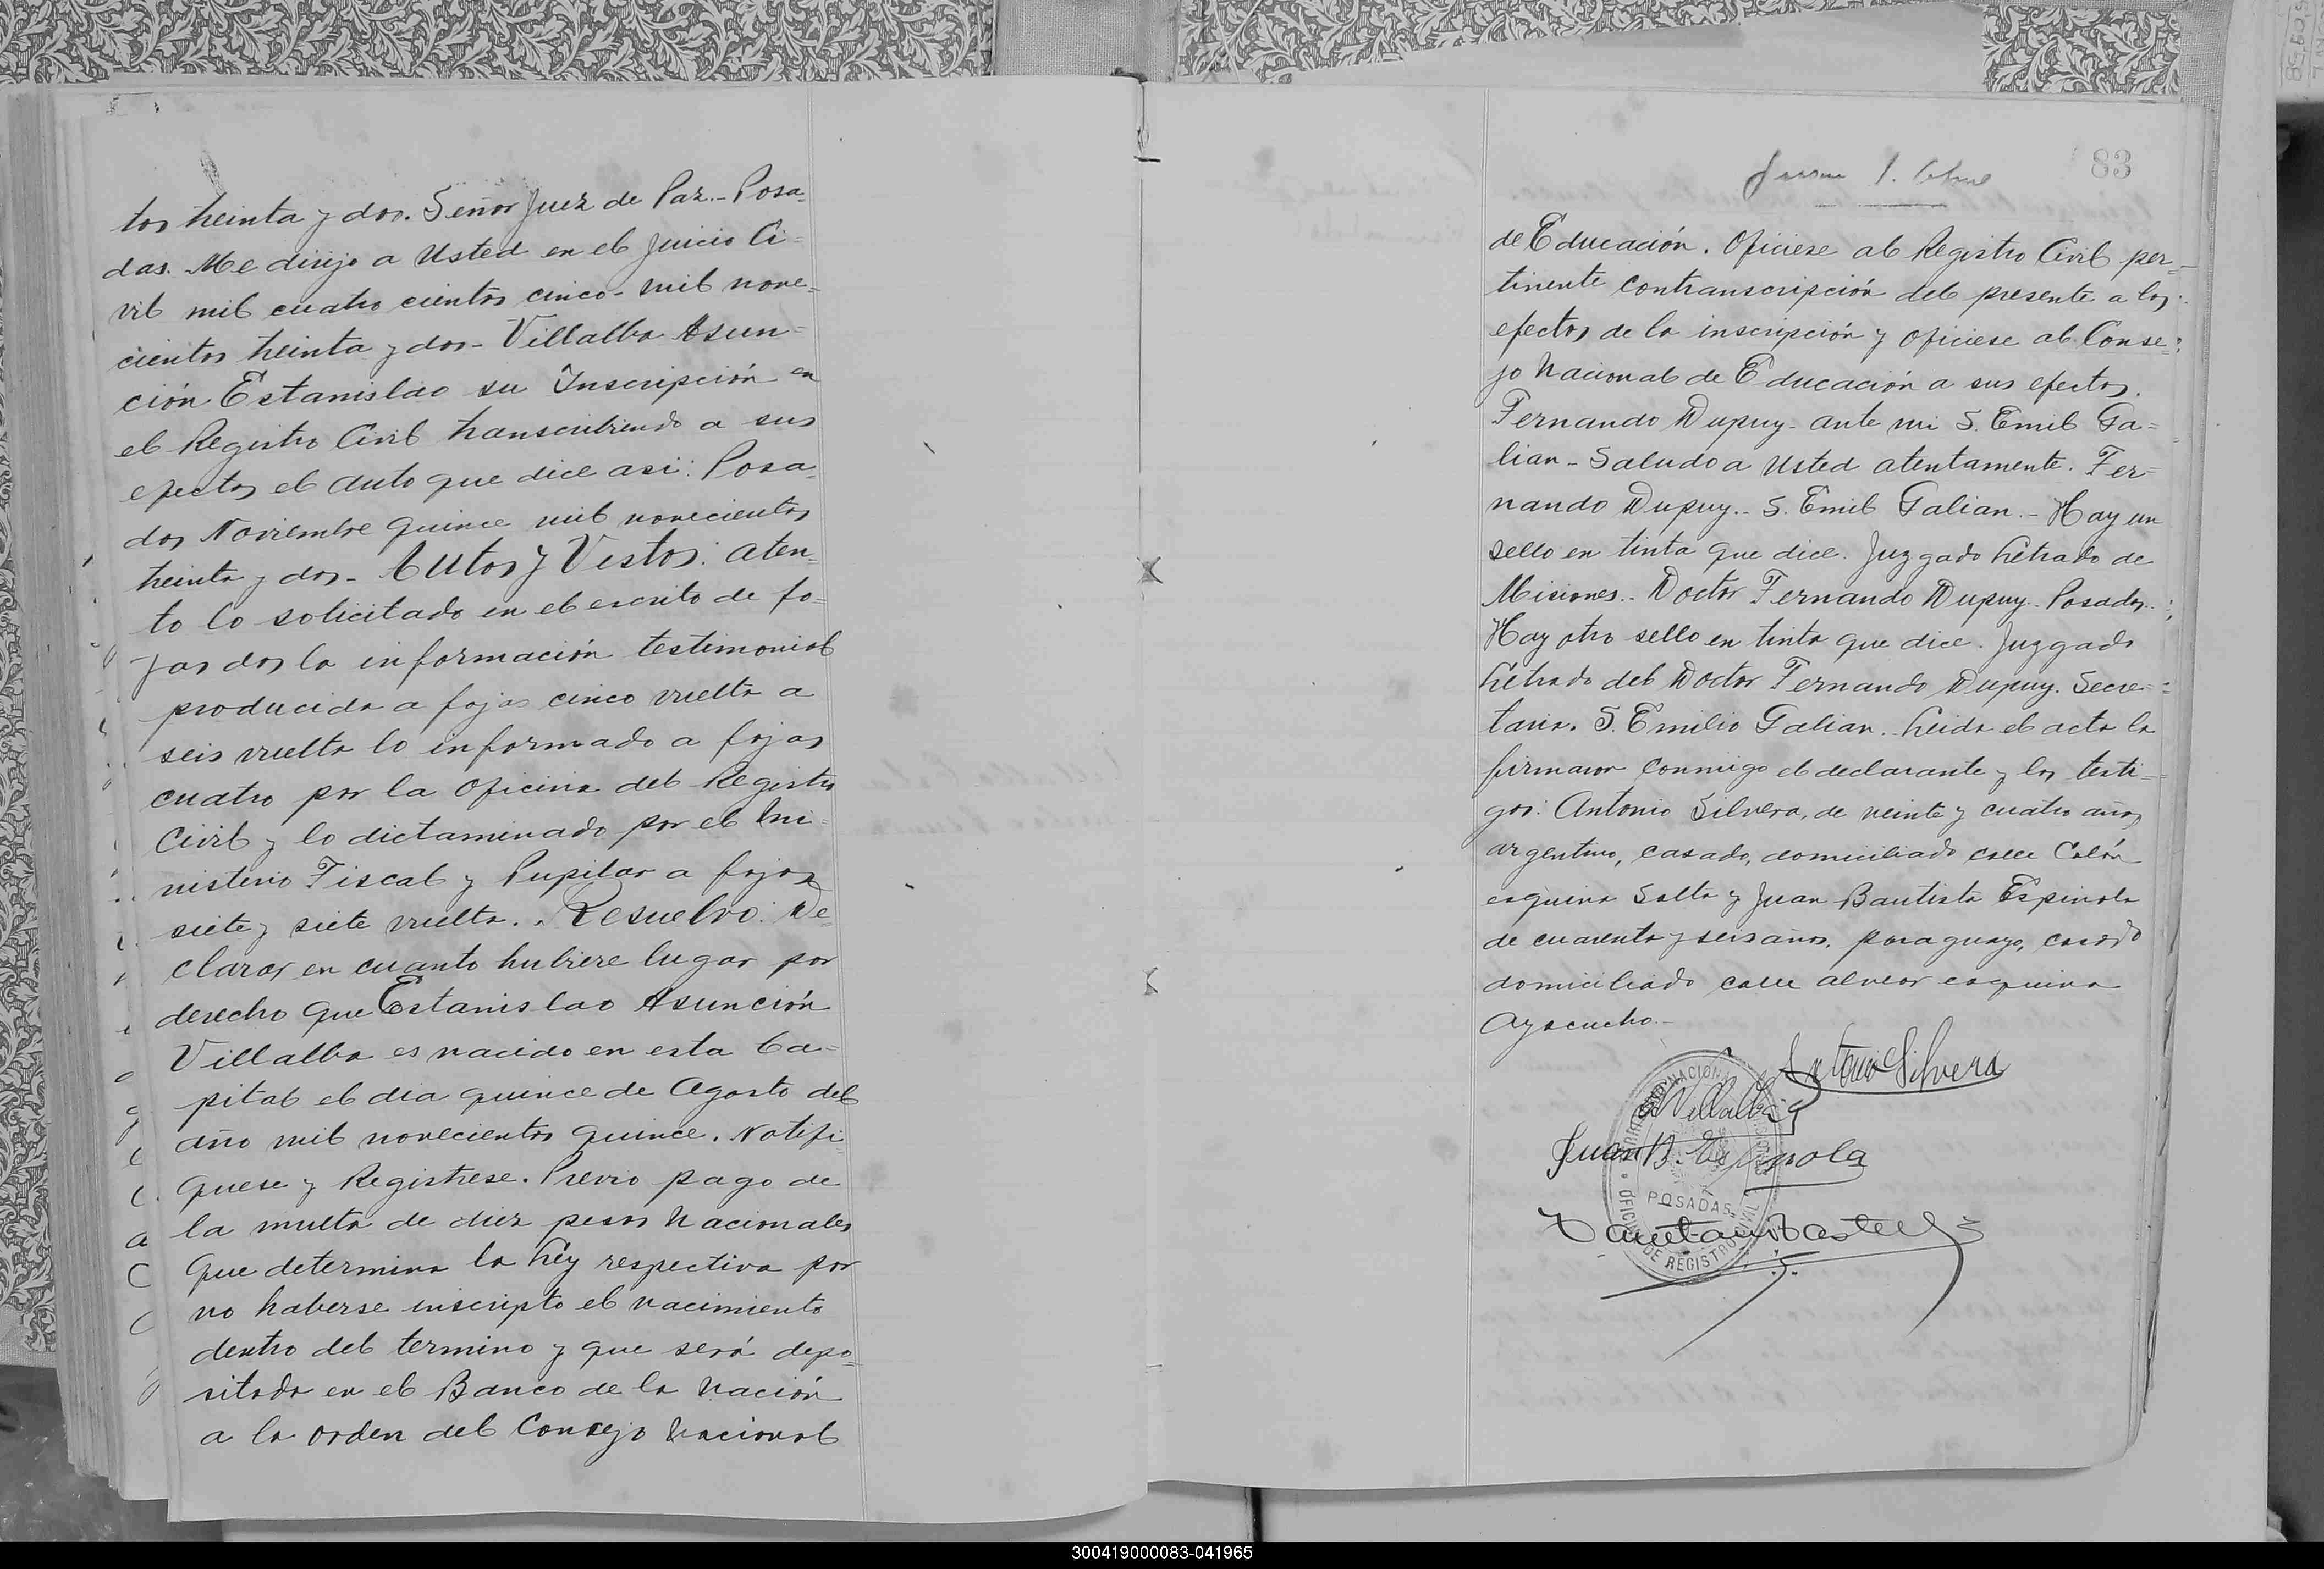 tos treinta y dos. Señor Juez de Paz.- Posa=
das. Me dirijo a Usted en el juicio Ci=
vil mil cuatro cientos cinco- mil nove=
cientos treinta y dos- Villalba Asun=
ción Estanislao su Inscripción en
el Registro Civil transcribiendo a sus
efectos el auto que dice asi: Posa=
das Noviembre quince mil novecientos
treinta y dos- Autos y Vistos: aten=
to lo solicitado en el escrito de fo=
jas dos la información testimonial
producida a fojas cinco vuelta a
seis vuelta lo informado a fojas
cuatro por la oficina del Registro
Civil y lo dictaminado por el Mi=
nisterio Fiscal y Pupilar a fojas
siete y siete vuelta.. Resuelvo: De=
clarar en cuanto hubiere lugar por
derecho que Estanislao Asunción
Villalba es nacido en esta Ca=
pital el dia quince de Agosto del
año mil novecientos quince. Notifi
quese y Registrese. Previo pago de
la multa de diez pesos Nacionales
que determina la Ley respectiva por
no haberse inscripto el nacimiento
dentro del termino y que será depo=
sitada en el Banco de la Nación
a la orden del Consejo Nacional
83
de Educación. Oficiese al Registro Civil per=
tinente contranscripción del presente a los
efectos de la inscripción y oficiese al Conse=
jo Nacional de Educación a sus efectos.
Fernando Dupuy- ante mi S. Emil Ga=
lian- Saludo a Usted atentamente. Fer=
nando Dupuy.- S. Emil Galian.- Hay un
sello en tinta que dice. Juzgado Letrado de
Misiones.. Doctor Fernando Dupuy- Posadas..
Hay otro sello en tinta que dice. Juzgado
Letrado del Doctor Fernando Dupuy. Secre=
taria. S. Emilio Galian.. Leida el acta la
firmaron conmigo el declarante y los testi=
gos: Antonio Silvera, de veinte y cuatro años
argentino, casado, domiciliado calle Colón
esquina Salta y Juan Bautista Espinola
de cuarenta y seis años, paraguayo, casado
domiciliado calle alvear esquina
Ayacucho.-
Antonio Silvera
Villalba
Juan B. Espinola
POSADAS
OFICINA DE REGISTRO CIVIL
300419000083-041965